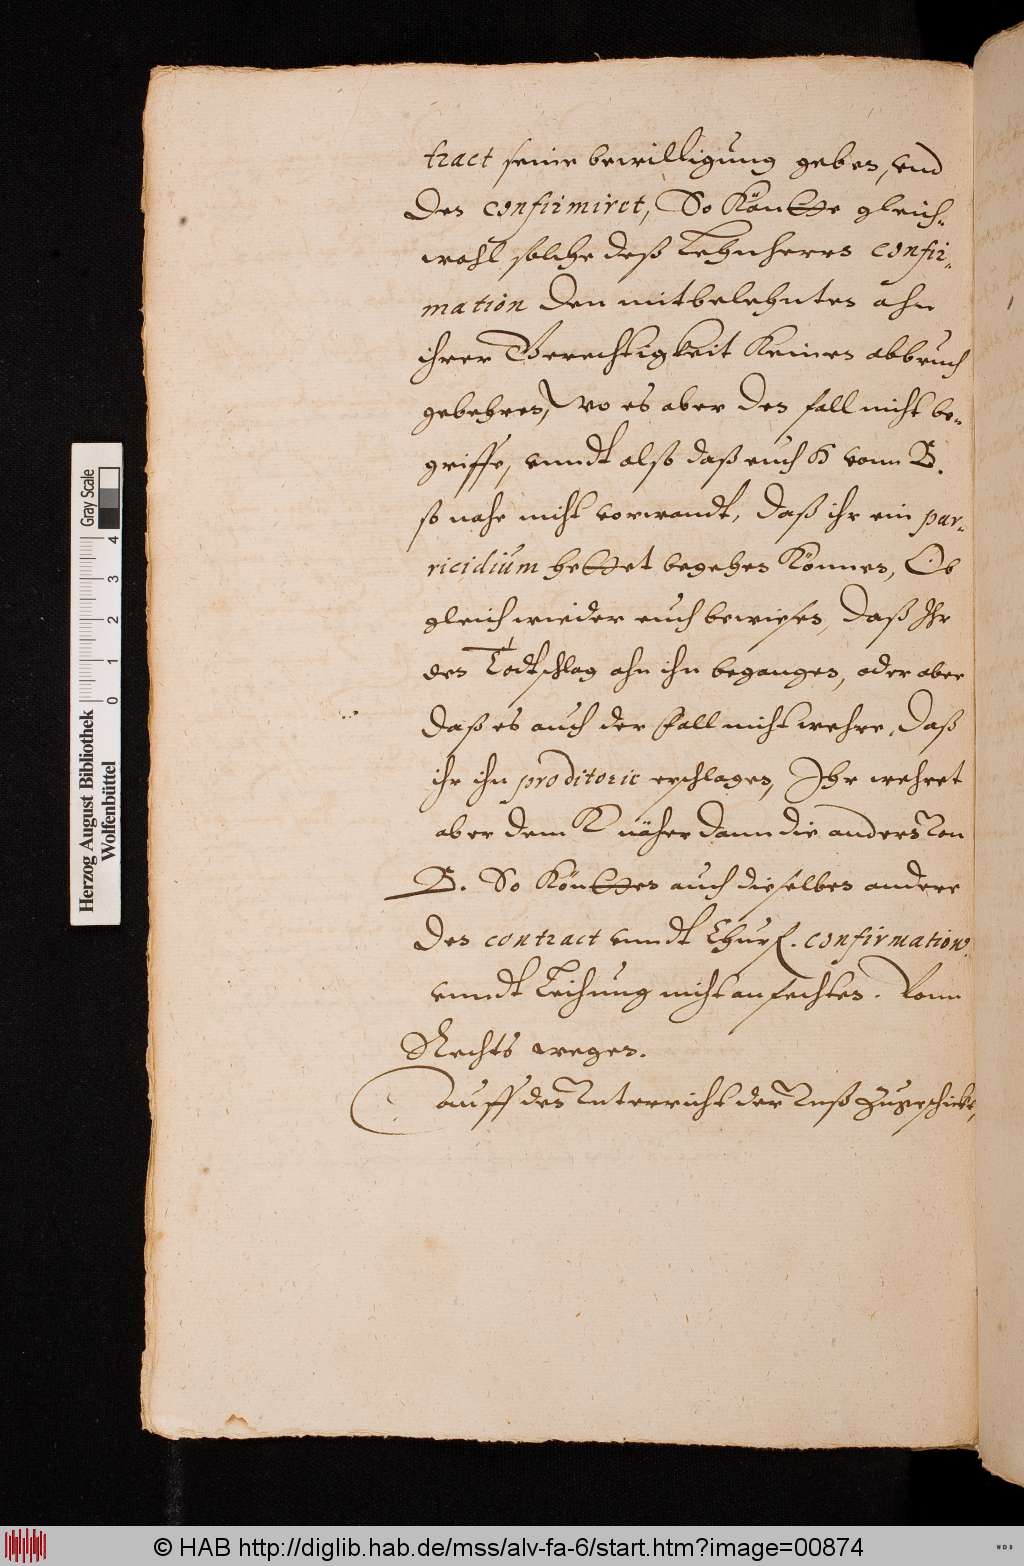 tract seine bewilligung geben, und
den confirmiret, So Köntte gleich-
wohl solche deß Lehnherrn confir-
mation den mitbelehnten ahn
ihrer Gerechtigkeit keinen abbruch
gebehren, wo es aber den fall nicht be-
griffe, unndt also daß euch K vonn B.
so nahe nicht vorwandt, daß ihr ein par-
ricidium hettet begehen können, Ob
gleich wieder euch bewiesen, daß Ihr
den Todtschlag ahn ihn begangen, oder aber
daß es auch der Fall nicht wehre, daß
ihr ihn proditorie erschlagen, Ihr wehret
aber dem K näher dann die andern von
B. So köntten auch dieselben andere
den contract unndt Churf. confirmation
unndt Leihung nicht anfechten. Vonn
Rechts wegen.
Auff den Unterricht der Unß zugeschickt,
Herzog August Bibliothek
Wolfenbüttel
0 1 2 3 4
Gray Scale
© HAB http://diglib.hab.de/mss/alv-fa-6/start.htm?image=00874
WDB